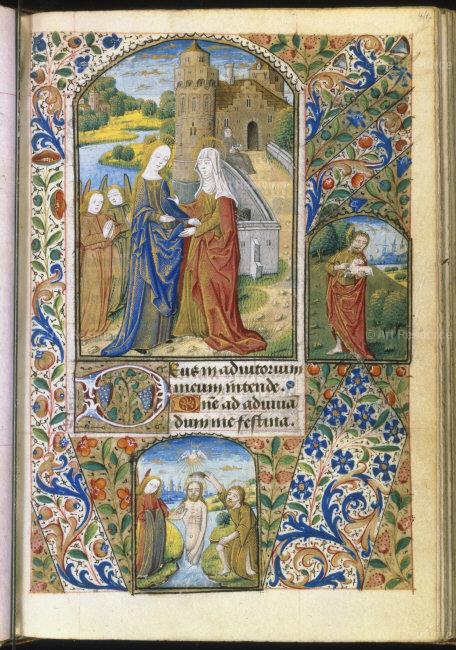 Deus in adiutorium
meum intende.
Dñe ad adiuua
dum me festina.
© Art Resource